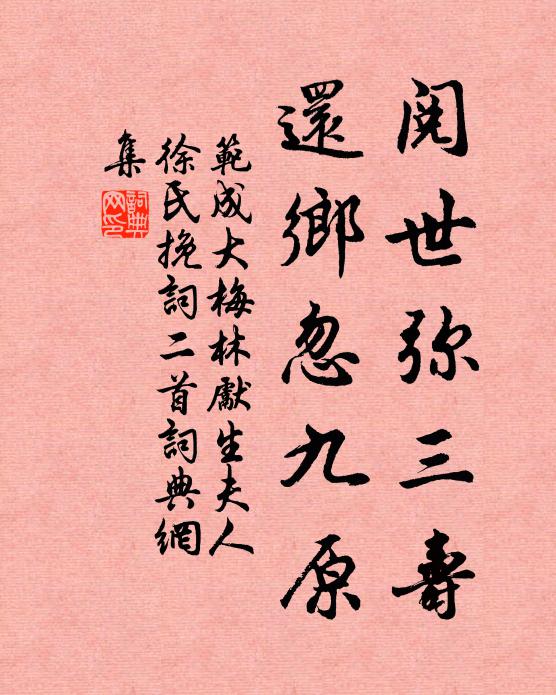 閱世弥三壽
還鄉忽九原
範成大梅林獻生夫人
徐氏挽詞二首詞典網
集
詞典网印